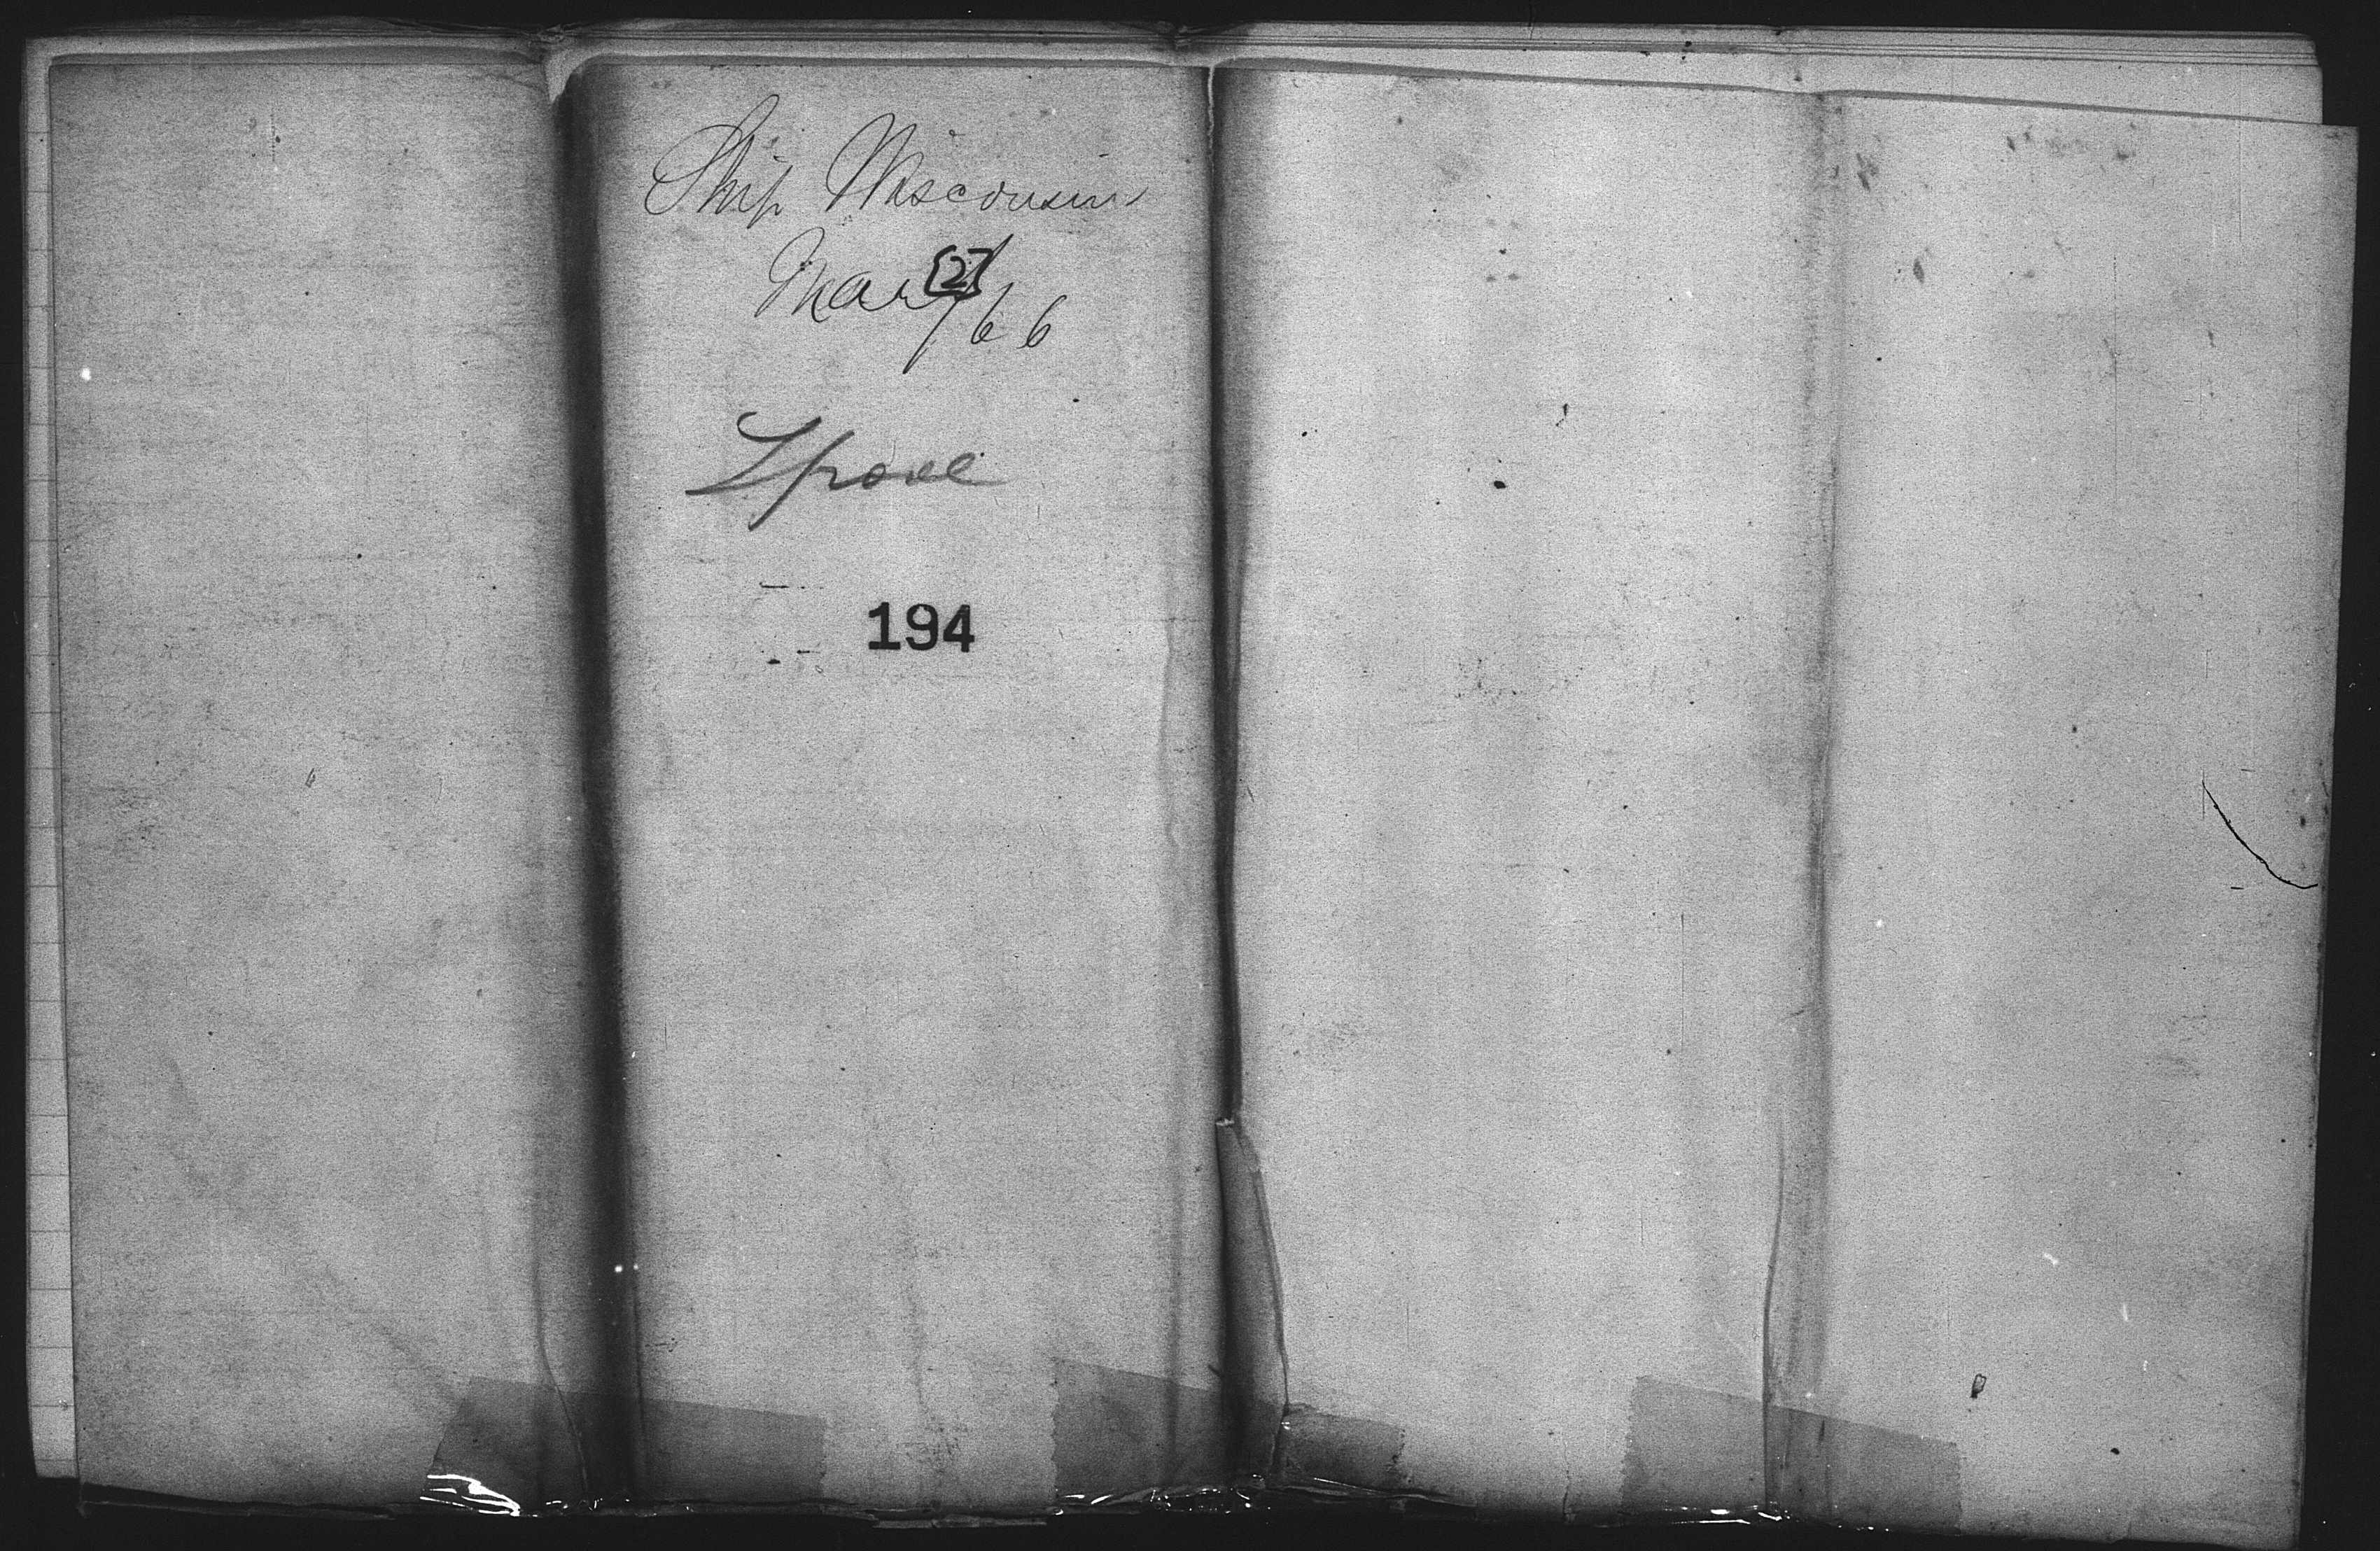 Ship Wisconsin
Mar [2]/66
Lpool
194